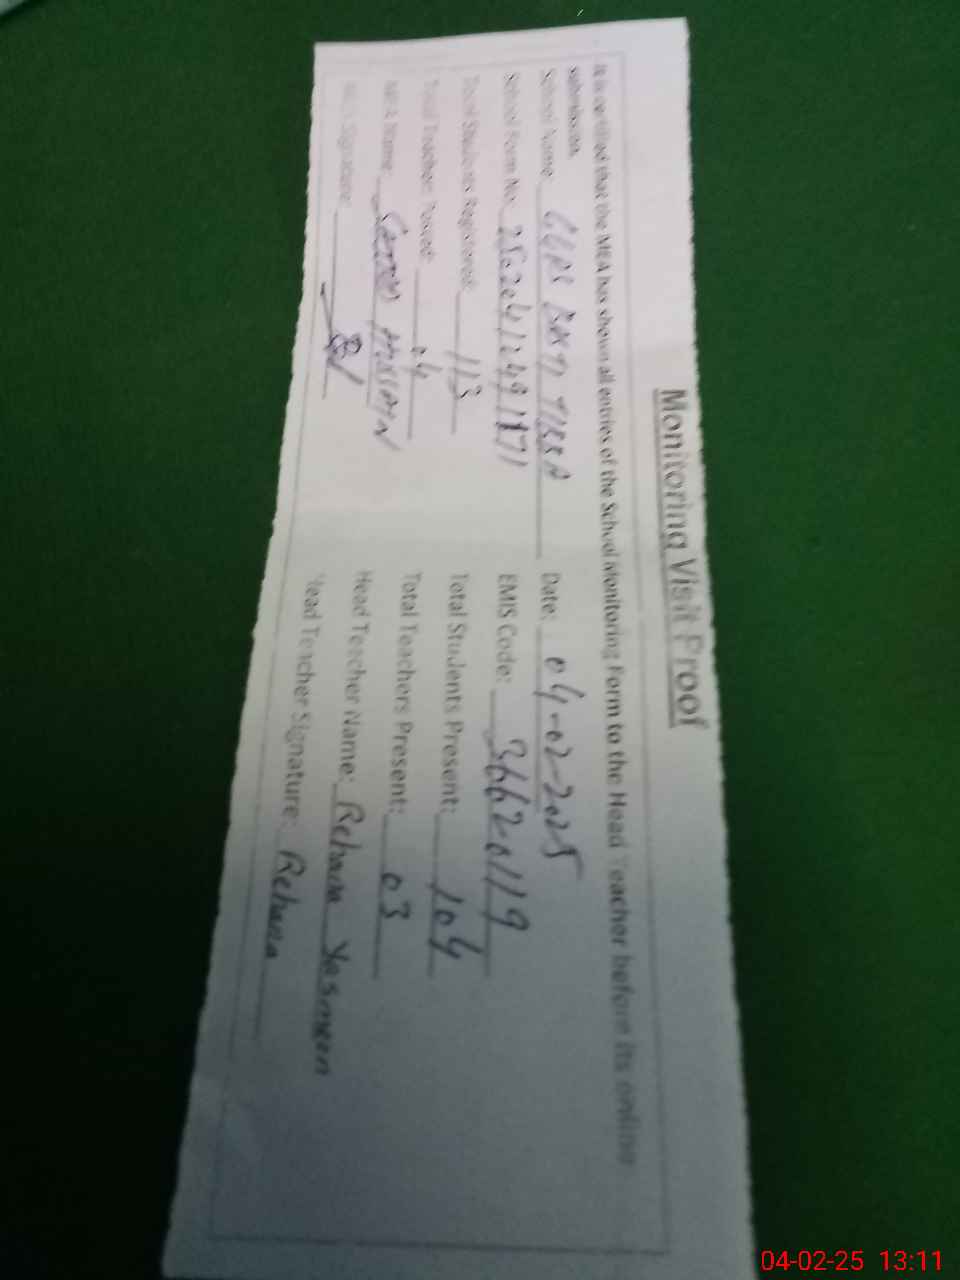 Monitoring Visit Proof
It is certified that the MEA has shown all entries of the School Monitoring Form to the Head Teacher before its online
submission.
School Name: GGPS BASTI TIBBA Date: 04-02-2025
School Form No: EMIS Code: 36620119
Total Students Registered: 113 Total Students Present: 104
Total Teachers Posted: 04 Total Teachers Present: 03
MEA Name: HUSSAIN Head Teacher Name: Rehana Yasmeen
MEA Signature: Head Teacher Signature: Rehana
04-02-25 13:11